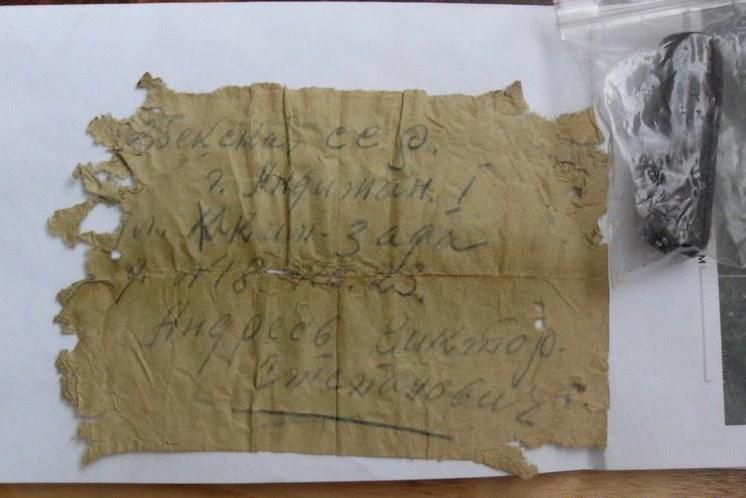 збекская ССР.
г. Андижан. 1
ул. Жкин-заде
д. №18. кв. 23.
Андреев Виктор.
Степанович